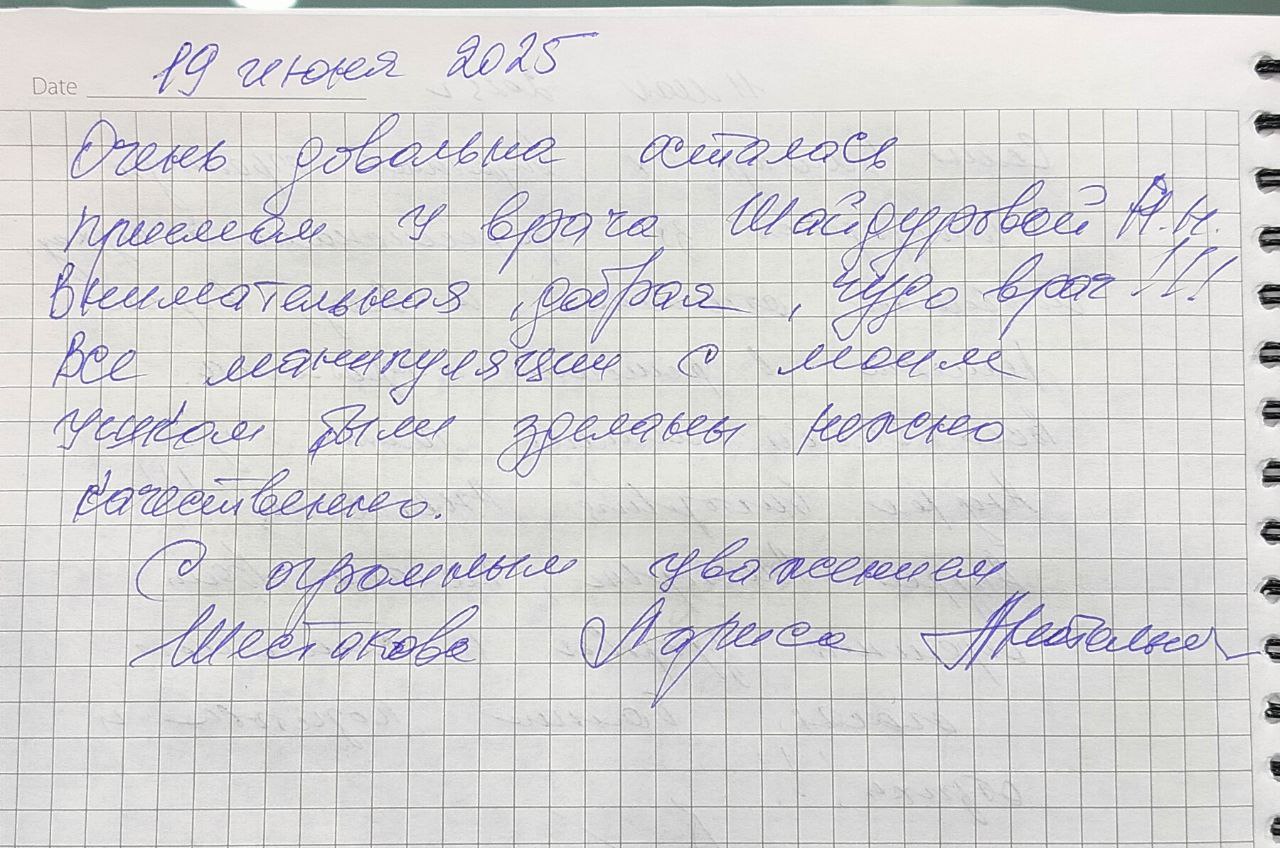 Date 19 июня 2025
Очень довольна осталась
приемом у врача Шайдуровой А.Н.
Внимательная, добрая, чудо врач!!!
Все манипуляции с моим
ушком были зделаны нежно
качественно.
С огромным уважением
Шестакова Лариса